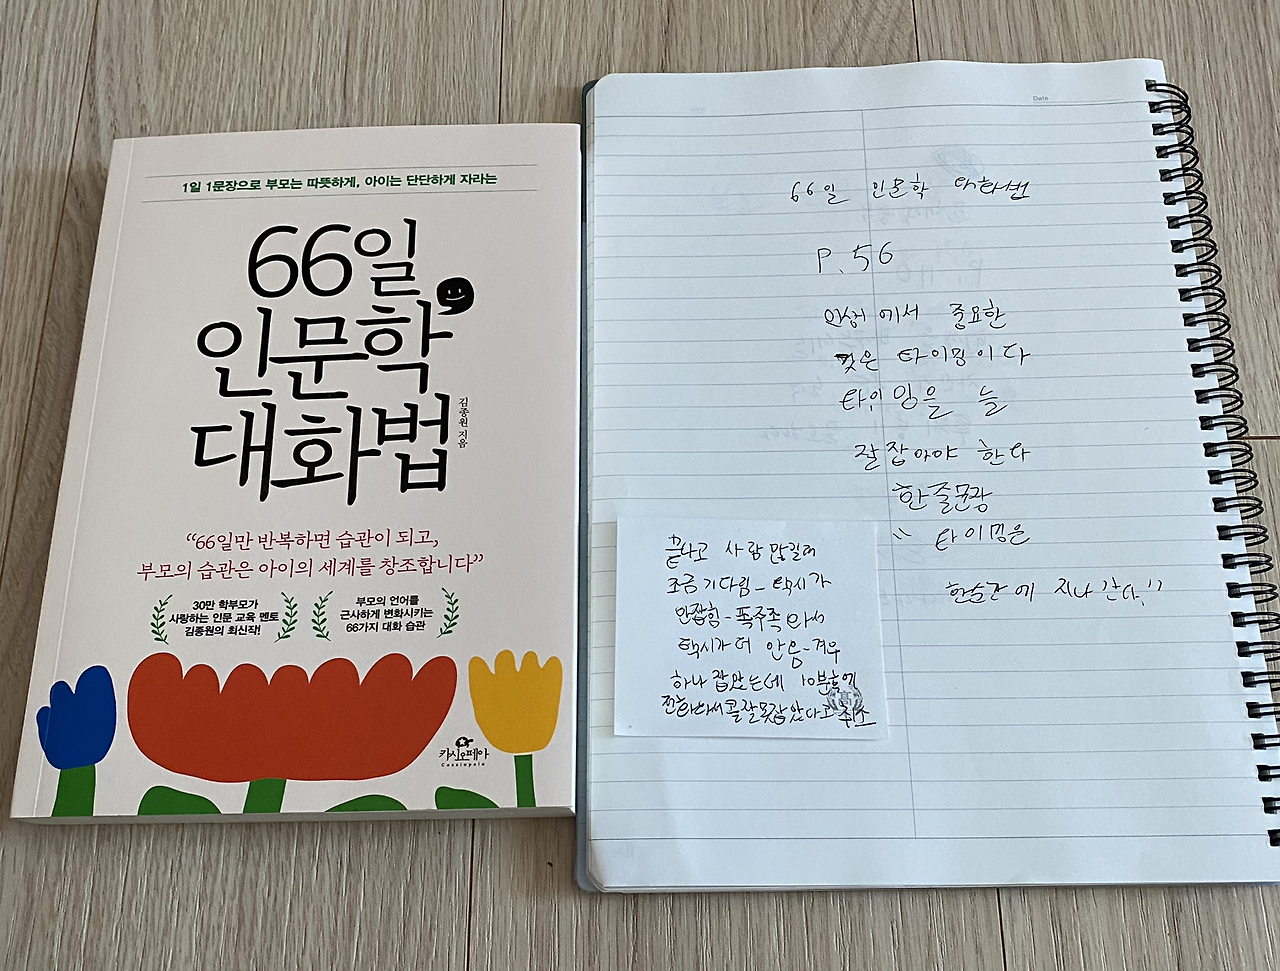 1일 1문장으로 부모는 따뜻하게, 아이는 단단하게 자라는
66일
인문학
대화법
김종원 지음
“66일만 반복하면 습관이 되고,
부모의 습관은 아이의 세계를 창조합니다”
30만 학부모가
사랑하는 인문 교육 멘토
김종원의 최신작!
부모의 언어를
근사하게 변화시키는
66가지 대화 습관
카시오페아
Cassiopeia
Date
66일 인문학 대화법
P. 56
인생에서 중요한
것은 타이밍이다
타이밍을 늘
잘잡아야 한다
한줄문장
" 타이밍은
한순간에 지나간다."
끝나고 사람 많길래
조금 기다림 - 택시가
안잡힘 - 폭주족 와서
택시가 더 안옴 - 겨우
하나 잡았는데 10분후에
전화와서 콜 잘못잡았다고 취소